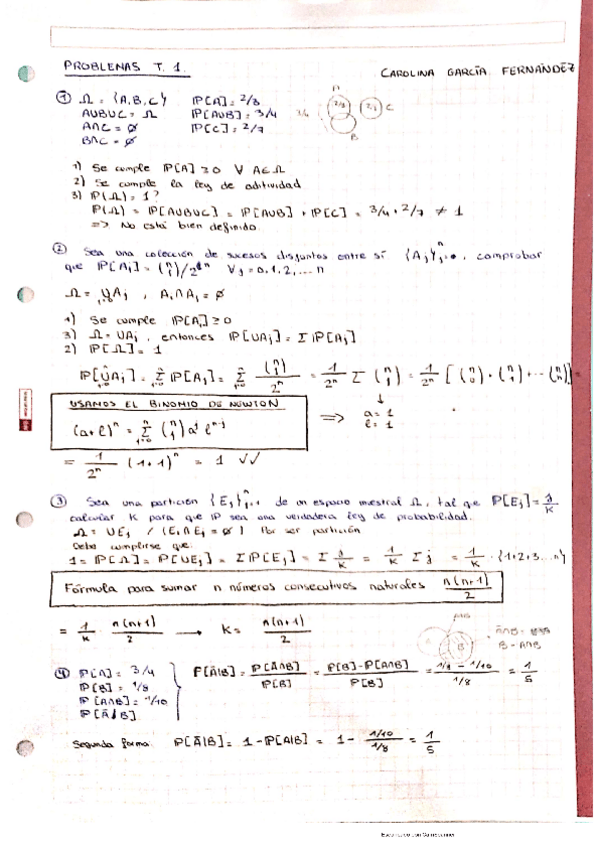 PROBLEMAS T. 1.
CAROLINA GARCÍA FERNÁNDEZ
① Ω = {A, B, C} P[A] = 2/8
A∪B∪C = Ω P[A∪B] = 3/4
A∩C = ∅ P[C] = 2/7
B∩C = ∅
A
C
B
1) Se cumple P[A] ≥ 0 ∀ A∈Ω
2) Se cumple la ley de aditividad
3) P(Ω) = 1?
P(Ω) = P[A∪B∪C] = P[A∪B] + P[C] = 3/4 + 2/7 ≠ 1
=> No está bien definido.
② Sea una colección de sucesos disjuntos entre sí {Aj}ⁿj=0, comprobar
que P[Aj] = (n j)/2ⁿ ∀j = 0, 1, 2, ... n
Ω = ∪Aj , Ai∩Aj = ∅
1) Se cumple P[A] ≥ 0
3) Ω = ∪Aj , entonces P[∪Aj] = Σ P[Aj]
2) P[Ω] = 1
P[∪Aj] = Σ P[Aj] = Σ (n j)/2ⁿ = 1/2ⁿ Σ (n j) = 1/2ⁿ [(n 0) + (n 1) + ... (n n)]
USAMOS EL BINOMIO DE NEWTON
(a+b)ⁿ = Σ (n j) aʲ bⁿ⁻ʲ
=> a = 1
b = 1
= 1/2ⁿ (1+1)ⁿ = 1 √√
③ Sea una partición {Ej}ⁿj=1 de un espacio muestral Ω, tal que P[Ej] = j/k
calcular K para que P sea una verdadera ley de probabilidad.
Ω = ∪Ej / (Ei∩Ej = ∅) Por ser partición
Debe cumplirse que:
1 = P[Ω] = P[∪Ej] = Σ P[Ej] = Σ j/k = 1/k Σ j = 1/k · {1+2+3...n}
Fórmula para sumar n números consecutivos naturales n(n+1)/2
= 1/k · n(n+1)/2 → k = n(n+1)/2
④ P[A] = 3/4
P[B] = 1/8
P[A∩B] = 1/10
P[Ā|B]
P[Ā|B] = P[Ā∩B]/P[B] = P[B]-P[A∩B]/P[B] = 1/8 - 1/10 / 1/8 = 1/5
A∩B
B - A∩B
Segunda forma P[Ā|B] = 1 - P[A|B] = 1 - 1/10 / 1/8 = 1/5
Escaneado con CamScanner